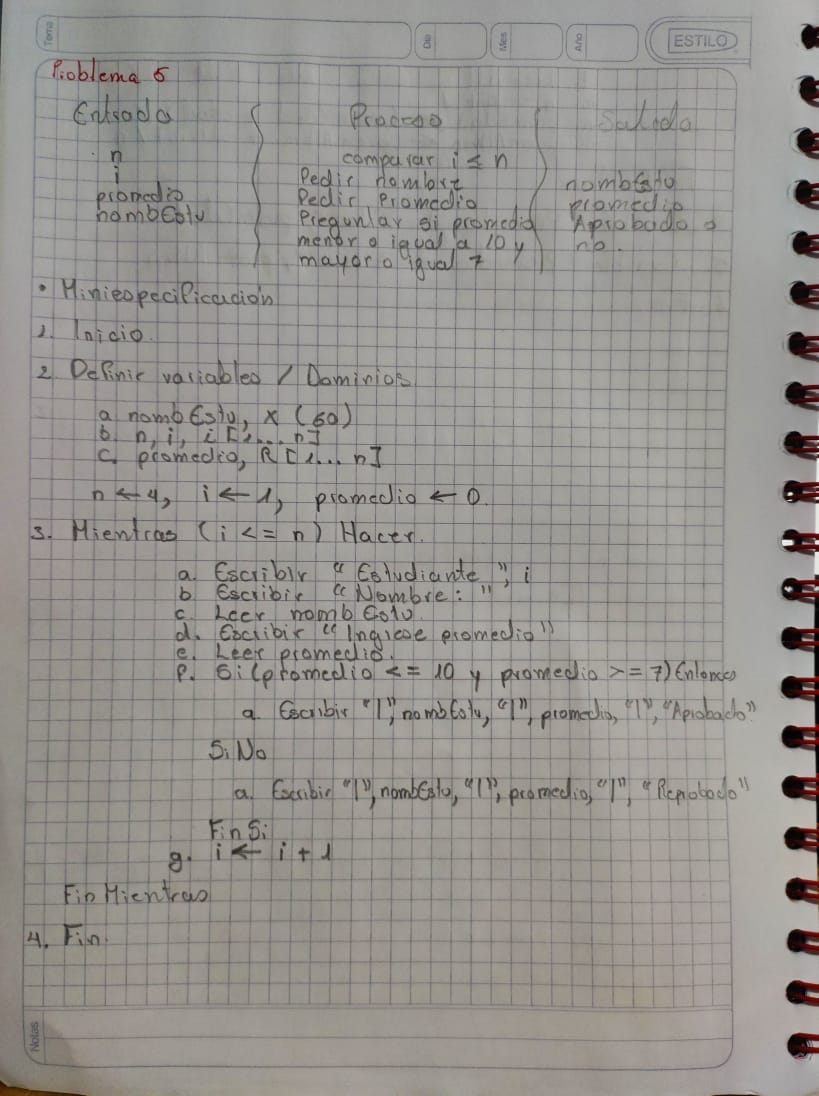 Tema
Día
Mes
Año
ESTILO
Problema 5
Entrada Proceso Salida
n comparar i ≤ n
i Pedir nombre nombEstu
promedio Pedir Promedio promedio
nombEstu Preguntar si promedio Aprobado o
menor o igual a 10 y no.
mayor o igual 7
• Miniespecificación
1. Inicio.
2. Definir variables / Dominios
a. nombEstu, X (60)
b. n, i, i [1... n]
c. promedio, R [1... n]
n ← 4, i ← 1, promedio ← 0.
3. Mientras (i <= n) Hacer.
a. Escribir "Estudiante", i
b. Escribir "Nombre: "
c. Leer nombEstu.
d. Escribir "Ingrese promedio"
e. Leer promedio.
f. Si (promedio <= 10 y promedio >= 7) Entonces
a. Escribir "|", nombEstu, "|", promedio, "|", "Aprobado"
SiNo
a. Escribir "|", nombEstu, "|", promedio, "|", "Reprobado"
Fin Si
g. i ← i + 1
Fin Mientras
4. Fin.
Notas